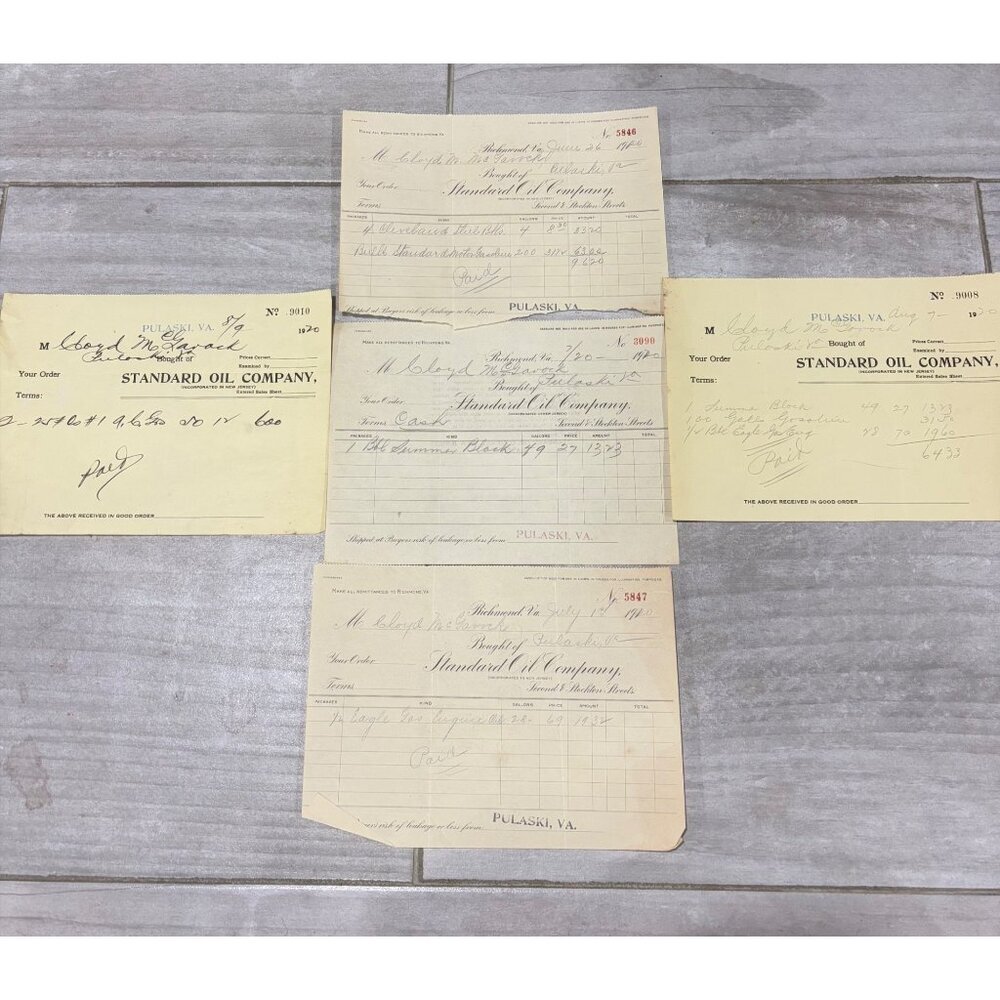 MAKE ALL REMITTANCES TO RICHMOND, VA.
No 5846
Richmond, Va. June 26 1920
M Cloyd M. McGavock
Bought of Pulaski, Va
Your Order
Standard Oil Company,
(INCORPORATED IN NEW JERSEY)
Terms
Second & Stockton Streets
PACKAGES KIND GALLONS PRICE AMOUNT TOTAL
4 Cleveland Steel Bbls 4 8 30 3320
Bulk Standard Motor Gasoline 200 6300
9620
Paid
Shipped at Buyers risk of leakage or loss from PULASKI, VA.
Nº 9010
PULASKI, VA. 8/9 1920
M Cloyd McGavock
Pulaski Va
Bought of
Prices Correct
Examined by
Your Order
STANDARD OIL COMPANY,
(INCORPORATED IN NEW JERSEY)
Terms:
Entered Sales Sheet
2- 25# #1 50 12 600
Paid
THE ABOVE RECEIVED IN GOOD ORDER
MAKE ALL REMITTANCES TO RICHMOND, VA.
No 3090
Richmond, Va. 7/20- 1920
M Cloyd McGavock
Bought of Pulaski Va
Your Order
Standard Oil Company,
Terms Cash
Second & Stockton Streets
PACKAGES KIND GALLONS PRICE AMOUNT TOTAL
1 Bbl Summer Black 49 27 1323
Shipped at Buyers risk of leakage or loss from PULASKI, VA.
Nº 9008
PULASKI, VA. Aug 7- 1920
M Cloyd McGavock
Pulaski Va
Bought of
Prices Correct
Examined by
Your Order
STANDARD OIL COMPANY,
(INCORPORATED IN NEW JERSEY)
Terms:
Entered Sales Sheet
1 Summer Black 49 27 1323
100 Gals Gasoline 3150
1/2 Bbl Eagle Gas Eng 28 70 1960
6433
Paid
THE ABOVE RECEIVED IN GOOD ORDER
MAKE ALL REMITTANCES TO RICHMOND, VA.
No 5847
Richmond, Va. July 1st 1920
M Cloyd McGavock
Bought of Pulaski, Va
Your Order
Standard Oil Company,
(INCORPORATED IN NEW JERSEY)
Terms
Second & Stockton Streets
PACKAGES KIND GALLONS PRICE AMOUNT TOTAL
1/2 Eagle Gas Engine Oil 28 69 1932
Paid
risk of leakage or loss from PULASKI, VA.